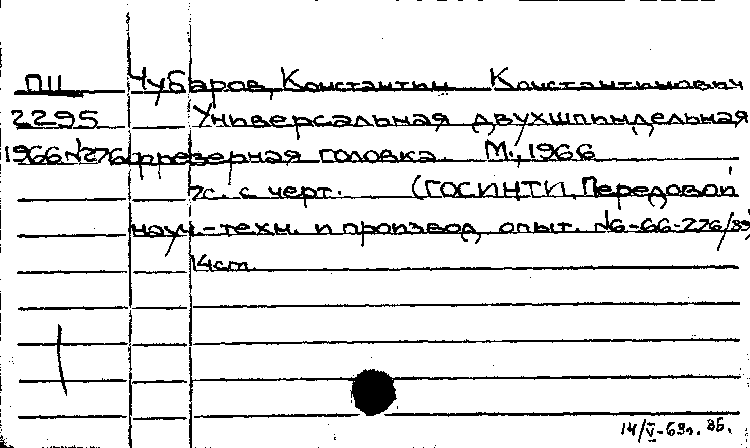 ПII Чубаров, Константин Константинович
2295 Универсальная двухшпиндельная
1966 №276 фрезерная головка. М., 1966
7с. с черт. (ГОСИНТИ. Передовой
науч.-техн. и производ. опыт. №6-66-276/35)
14см.
14/V-69г.